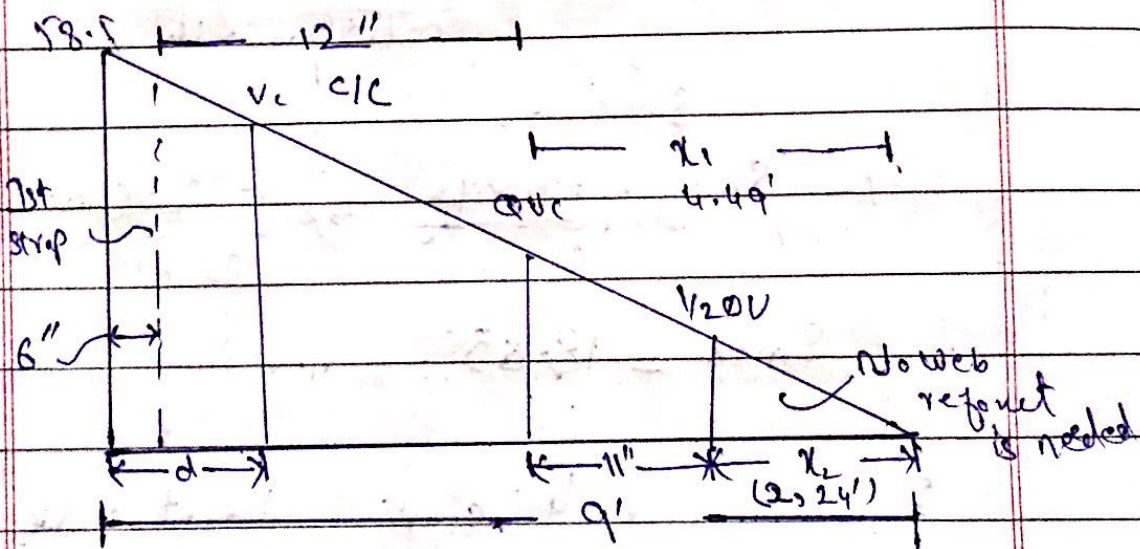 58.5
12"
Vc C/C
x1
4.49'
1st
strap
ΦVc
6"
1/2ΦV
No Web
refonct
is needed
d
11"
x2
(2,24')
9'